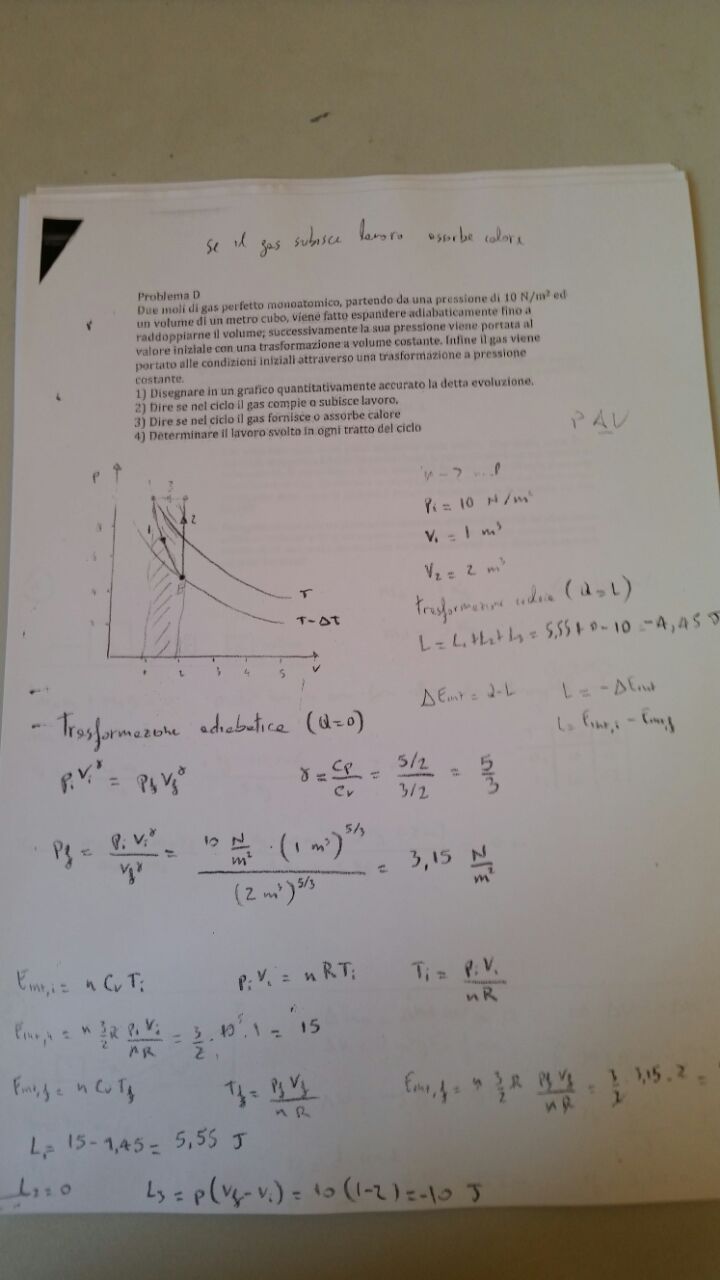 se il gas subisce lavoro assorbe calore
Problema D
Due moli di gas perfetto monoatomico, partendo da una pressione di 10 N/m² ed
un volume di un metro cubo, viene fatto espandere adiabaticamente fino a
raddoppiarne il volume; successivamente la sua pressione viene portata al
valore iniziale con una trasformazione a volume costante. Infine il gas viene
portato alle condizioni iniziali attraverso una trasformazione a pressione
costante.
1) Disegnare in un grafico quantitativamente accurato la detta evoluzione.
2) Dire se nel ciclo il gas compie o subisce lavoro.
3) Dire se nel ciclo il gas fornisce o assorbe calore
4) Determinare il lavoro svolto in ogni tratto del ciclo
P Δ V
P
1 3
2
T
T-ΔT
1 2 3 4 5 V
Pi = 10 N/m²
Vi = 1 m³
V2 = 2 m³
trasformazione (Q=L)
L = L1+L2+L3 = 5,55+0-10 = -4,45 J
ΔEint = Q-L L = -ΔEint
L = Eint,i - Eint,f
- Trasformazione adiabatica (Q=0)
Pi Vi^γ = Pf Vf^γ γ = Cp/Cv = 5/2 / 3/2 = 5/3
Pf = Pi Vi^γ / Vf^γ = 10 N/m² · (1 m³)^5/3 / (2 m³)^5/3 = 3,15 N/m²
Eint,i = n Cv Ti Pi Vi = n R Ti Ti = Pi Vi / nR
Eint,i = n 3/2 R Pi Vi / nR = 3/2 · 10 · 1 = 15
Eint,f = n Cv Tf Tf = Pf Vf / nR Eint,f = n 3/2 R Pf Vf / nR = 3/2 · 3,15 · 2 =
L1 = 15 - 9,45 = 5,55 J
L2 = 0 L3 = p(Vf-Vi) = 10(1-2) = -10 J